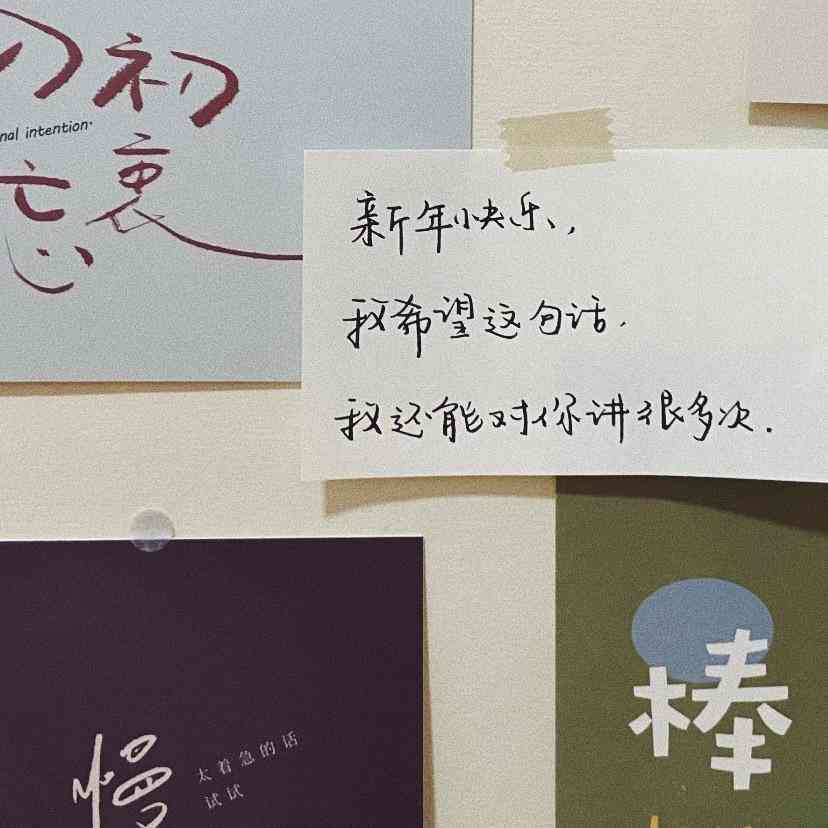 初
nal intention.
忘衷
新年快乐，
我希望这句话，
我还能对你讲很多次.
慢
太着急的话
试试
棒